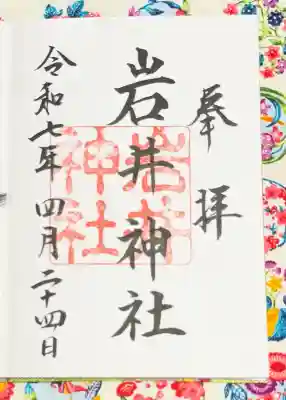 奉拝
岩井神社
岩井神社
令和七年四月二十四日